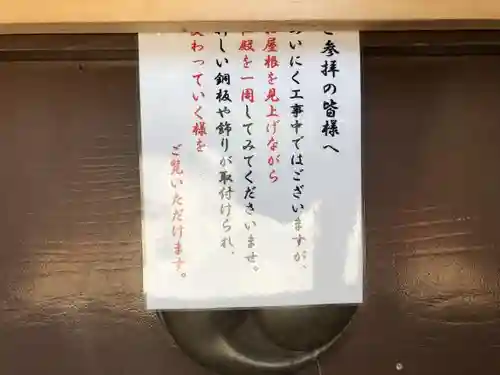 ご参拝の皆様へ
あいにく工事中ではございますが、
お屋根を見上げながら
殿を一周してみてくださいませ。
新しい銅板や飾りが取付けられ、
変わっていく様を
ご覧いただけます。